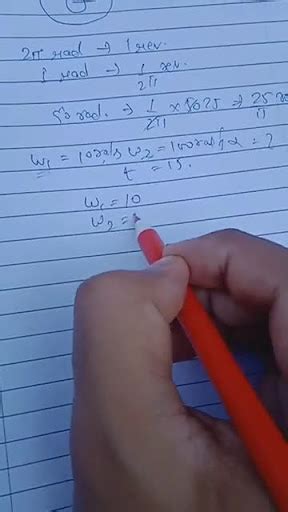 2π rad → 1 rev.
1 rad → 1/2π rev.
50 rad. → 1/2π × 50 25 → 25/π
ω₁ = 10 rad/s ω₂ = 100 rad/s α = ?
t = 15.
ω₁ = 10
ω₂ =